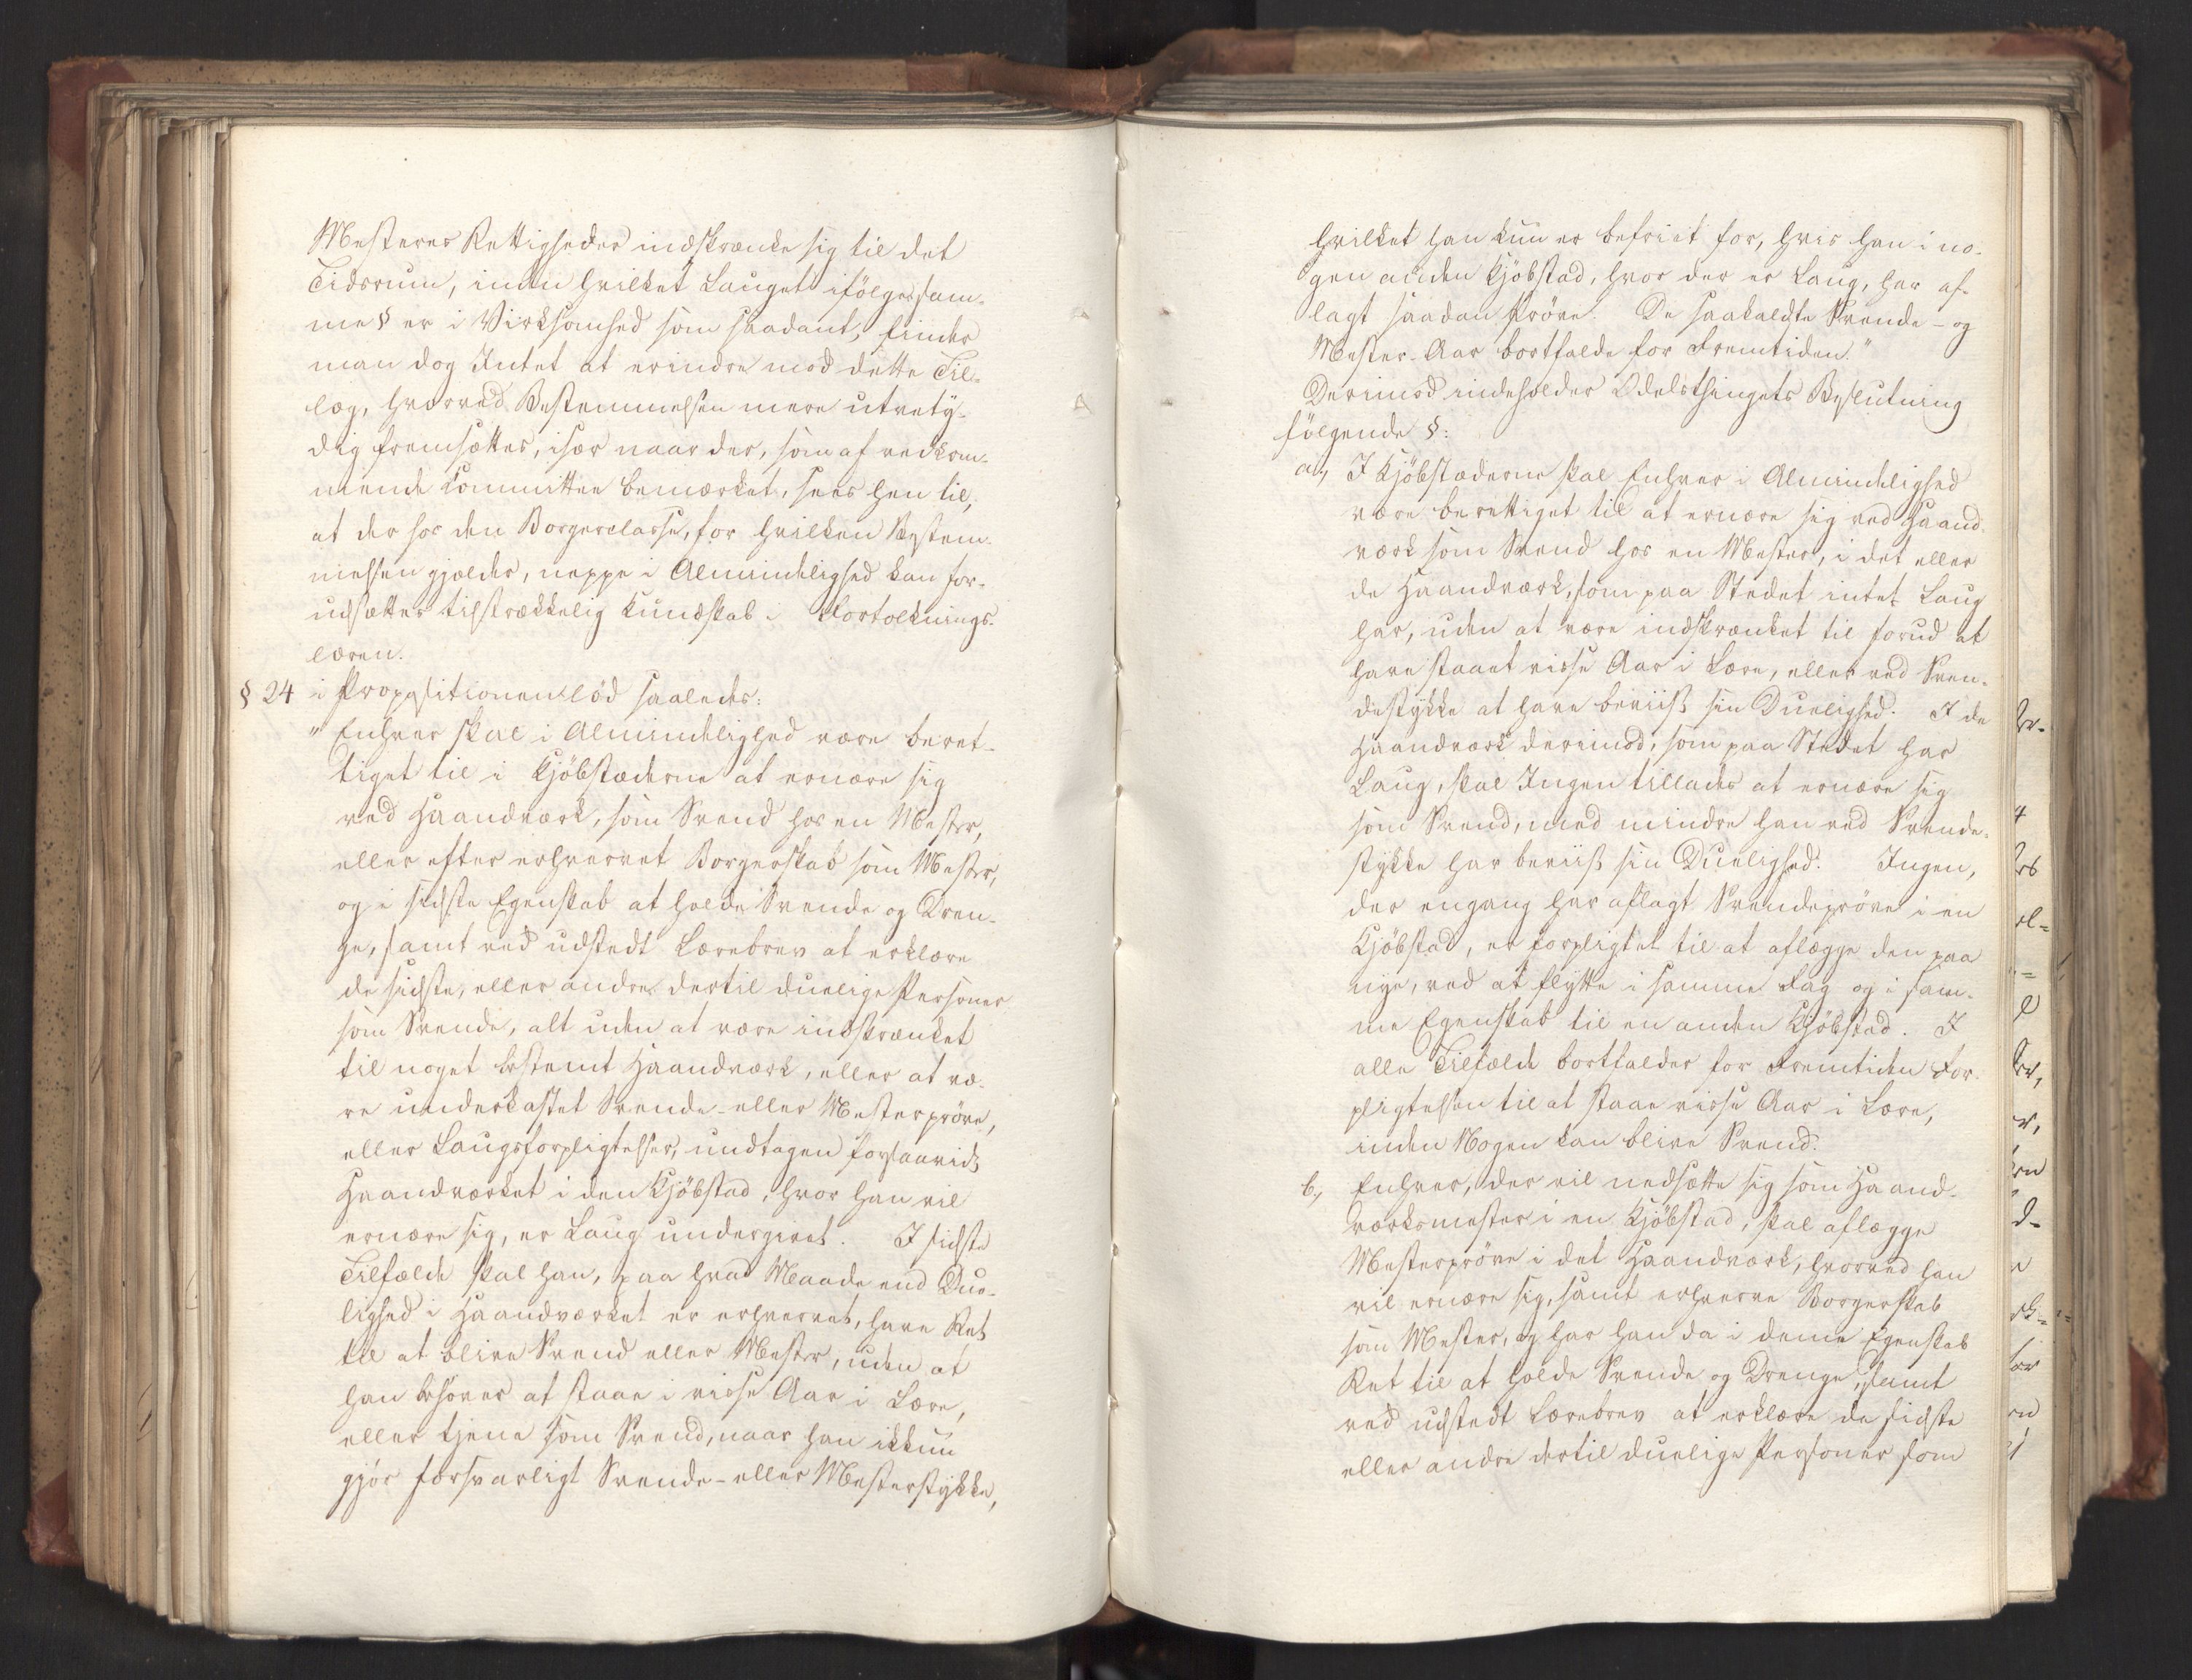 Mesteres Rettigheder indskrænke sig til det
Tidsrum, inden hvilket Lauget ifölge sam-
me § er i Virksomhed som saadant, finder
man dog Intet at erindre mod dette Til-
læg, hvorved Bestemmelsen mere utvety-
dig fremsættes, især naar der, som af vedkom-
mende Committee bemærket, sees hen til,
at der hos den Borgerclasse, for hvilken Bestem-
melsen gjælder, neppe i Almindelighed kan for-
udsættes tilstrækkelig Kundskab i Fortolknings-
læren.
§ 24 i Propositionen löd saaledes:
"Enhver skal i Almindelighed være beret-
tiget til i Kjöbstæderne at ernære sig
ved Haandværk, som Svend hos en Mester,
eller efter erhvervet Borgerskab som Mester,
og i sidste Egenskab at holde Svende og Dren-
ge, samt ved udstedt Lærebrev at erklære
de sidste, eller andre dertil duelige Personer
som Svende, alt uden at være indskrænket
til noget bestemt Haandværk, eller at væ-
re underkastet Svende- eller Mesterpröve,
eller Laugsforpligtelser, undtagen forsaavidt
Haandværket i den Kjöbstad, hvor han vil
ernære sig, er Laug undergivet. I sidste
Tilfælde skal han, paa hvad Maade end Due-
lighed i Haandværket er erhvervet, have Ret
til at blive Svend eller Mester, uden at
han behöver at staae i visse Aar i Lære,
eller tjene som Svend, naar han ikkun
gjör forsvarligt Svende- eller Mesterstykke,
hvilket han kun er befriet for, hvis han i no-
gen anden Kjöbstad, hvor der er Laug, har af-
lagt saadan Pröve. De saakaldte Svende- og
Mester-Aar bortfalde for Fremtiden."
Derimod indeholder Odelsthingets Beslutning
fölgende §:
a, I Kjöbstæderne skal Enhver i Almindelighed
være berettiget til at ernære sig ved Haand-
værk som Svend hos en Mester, i det eller
de Haandværk, som paa Stedet intet Laug
har, uden at være indskrænket til forud at
have staaet visse Aar i Lære, eller ved Sven-
destykke at have beviist sin Duelighed. I de
Haandværk derimod, som paa Stedet har
Laug, skal Ingen tillades at ernære sig
som Svend, med mindre han ved Svende-
stykke har beviist sin Duelighed. Ingen,
der engang har aflagt Svendepröve i en
Kjöbstad, er forpligtet til at aflægge den paa
nye, ved at flytte i samme Fag og i sam-
me Egenskab til en anden Kjöbstad. I
alle Tilfælde bortfalder for Fremtiden For-
pligtelsen til at staae visse Aar i Lære,
inden Nogen kan blive Svend.
b, Enhver, der vil nedsætte sig som Haand-
værksmester i en Kjöbstad, skal aflægge
Mesterpröve i det Haandværk, hvorved han
vil ernære sig, samt erhverve Borgerskab
som Mester, og har han da i denne Egenskab
Ret til at holde Svende og Drenge, samt
ved udstedt Lærebrev at erklære de sidste
eller andre dertil duelige Personer som